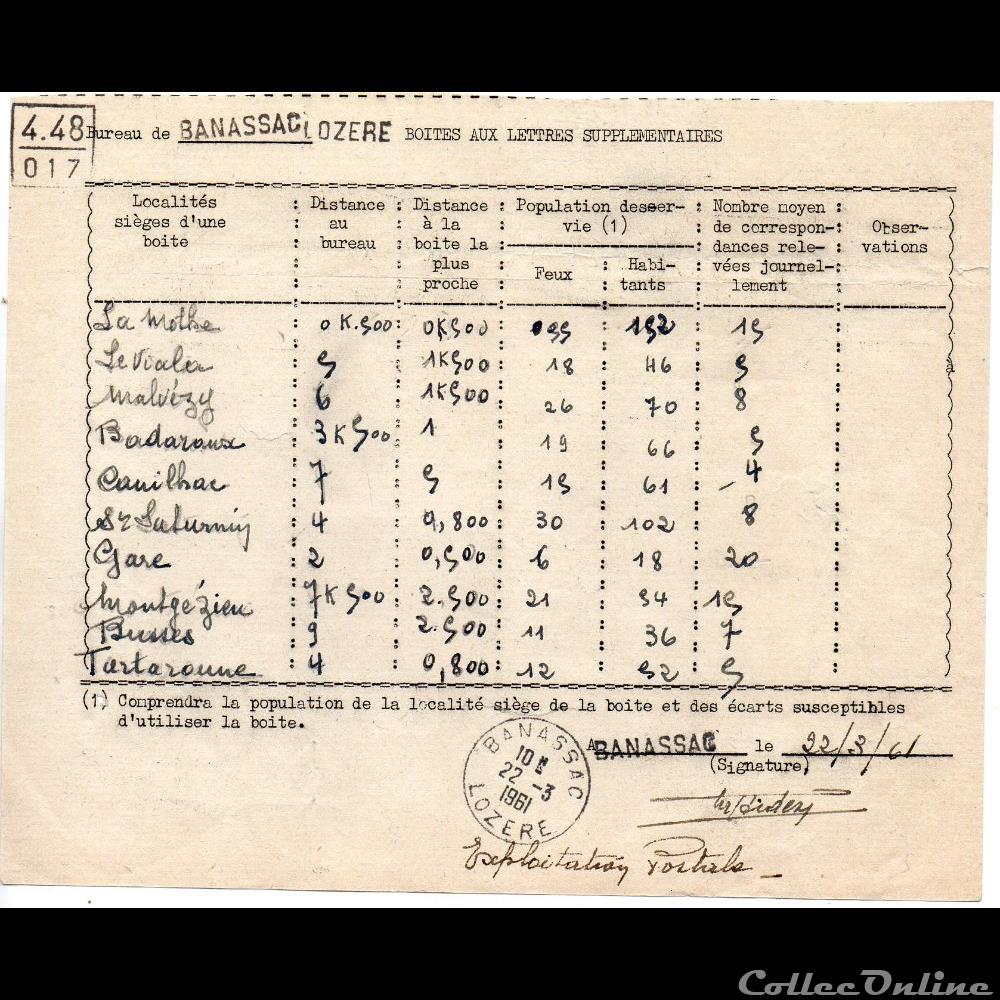 4.48
017
Bureau de BANASSAC LOZERE BOITES AUX LETTRES SUPPLEMENTAIRES
Localités sièges d'une boite : Distance au bureau : Distance à la boite la plus proche : Population desser-vie (1) Feux : Habi-tants : Nombre moyen de correspon-dances rele-vées journel-lement : Obser-vations
La Mothe : 0K.500 : 0K500 : 55 : 152 : 15
Le Viala : 5 : 1K500 : 18 : 46 : 5
Malvézy : 6 : 1K500 : 26 : 70 : 8
Badaroux : 3K500 : 1 : 19 : 66 : 5
Canilhac : 7 : 5 : 15 : 61 : 4
St Saturnin : 4 : 0,800 : 30 : 102 : 8
Gare : 2 : 0,500 : 6 : 18 : 20
Montgézieu : 7K500 : 2.500 : 21 : 54 : 15
Busses : 9 : 2.500 : 11 : 36 : 7
Tartaronne : 4 : 0,800 : 12 : 52 : 5
(1) Comprendra la population de la localité siège de la boite et des écarts susceptibles
d'utiliser la boite.
A BANASSAC le 22/3/61
(Signature)
BANASSAC
10 H
22 -3
1961
LOZERE
Exploitation Postale
CollecOnline